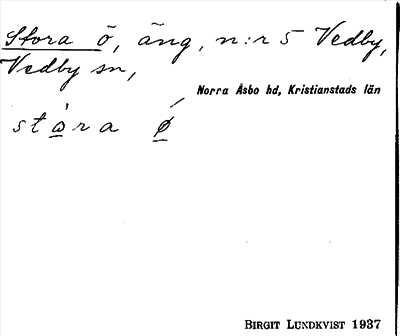 Stora ö, äng, n:r 5 Vedby,
Vedby sn,
Norra Åsbo hd, Kristianstads län
stὼra ǿ
BIRGIT LUNDKVIST 1937